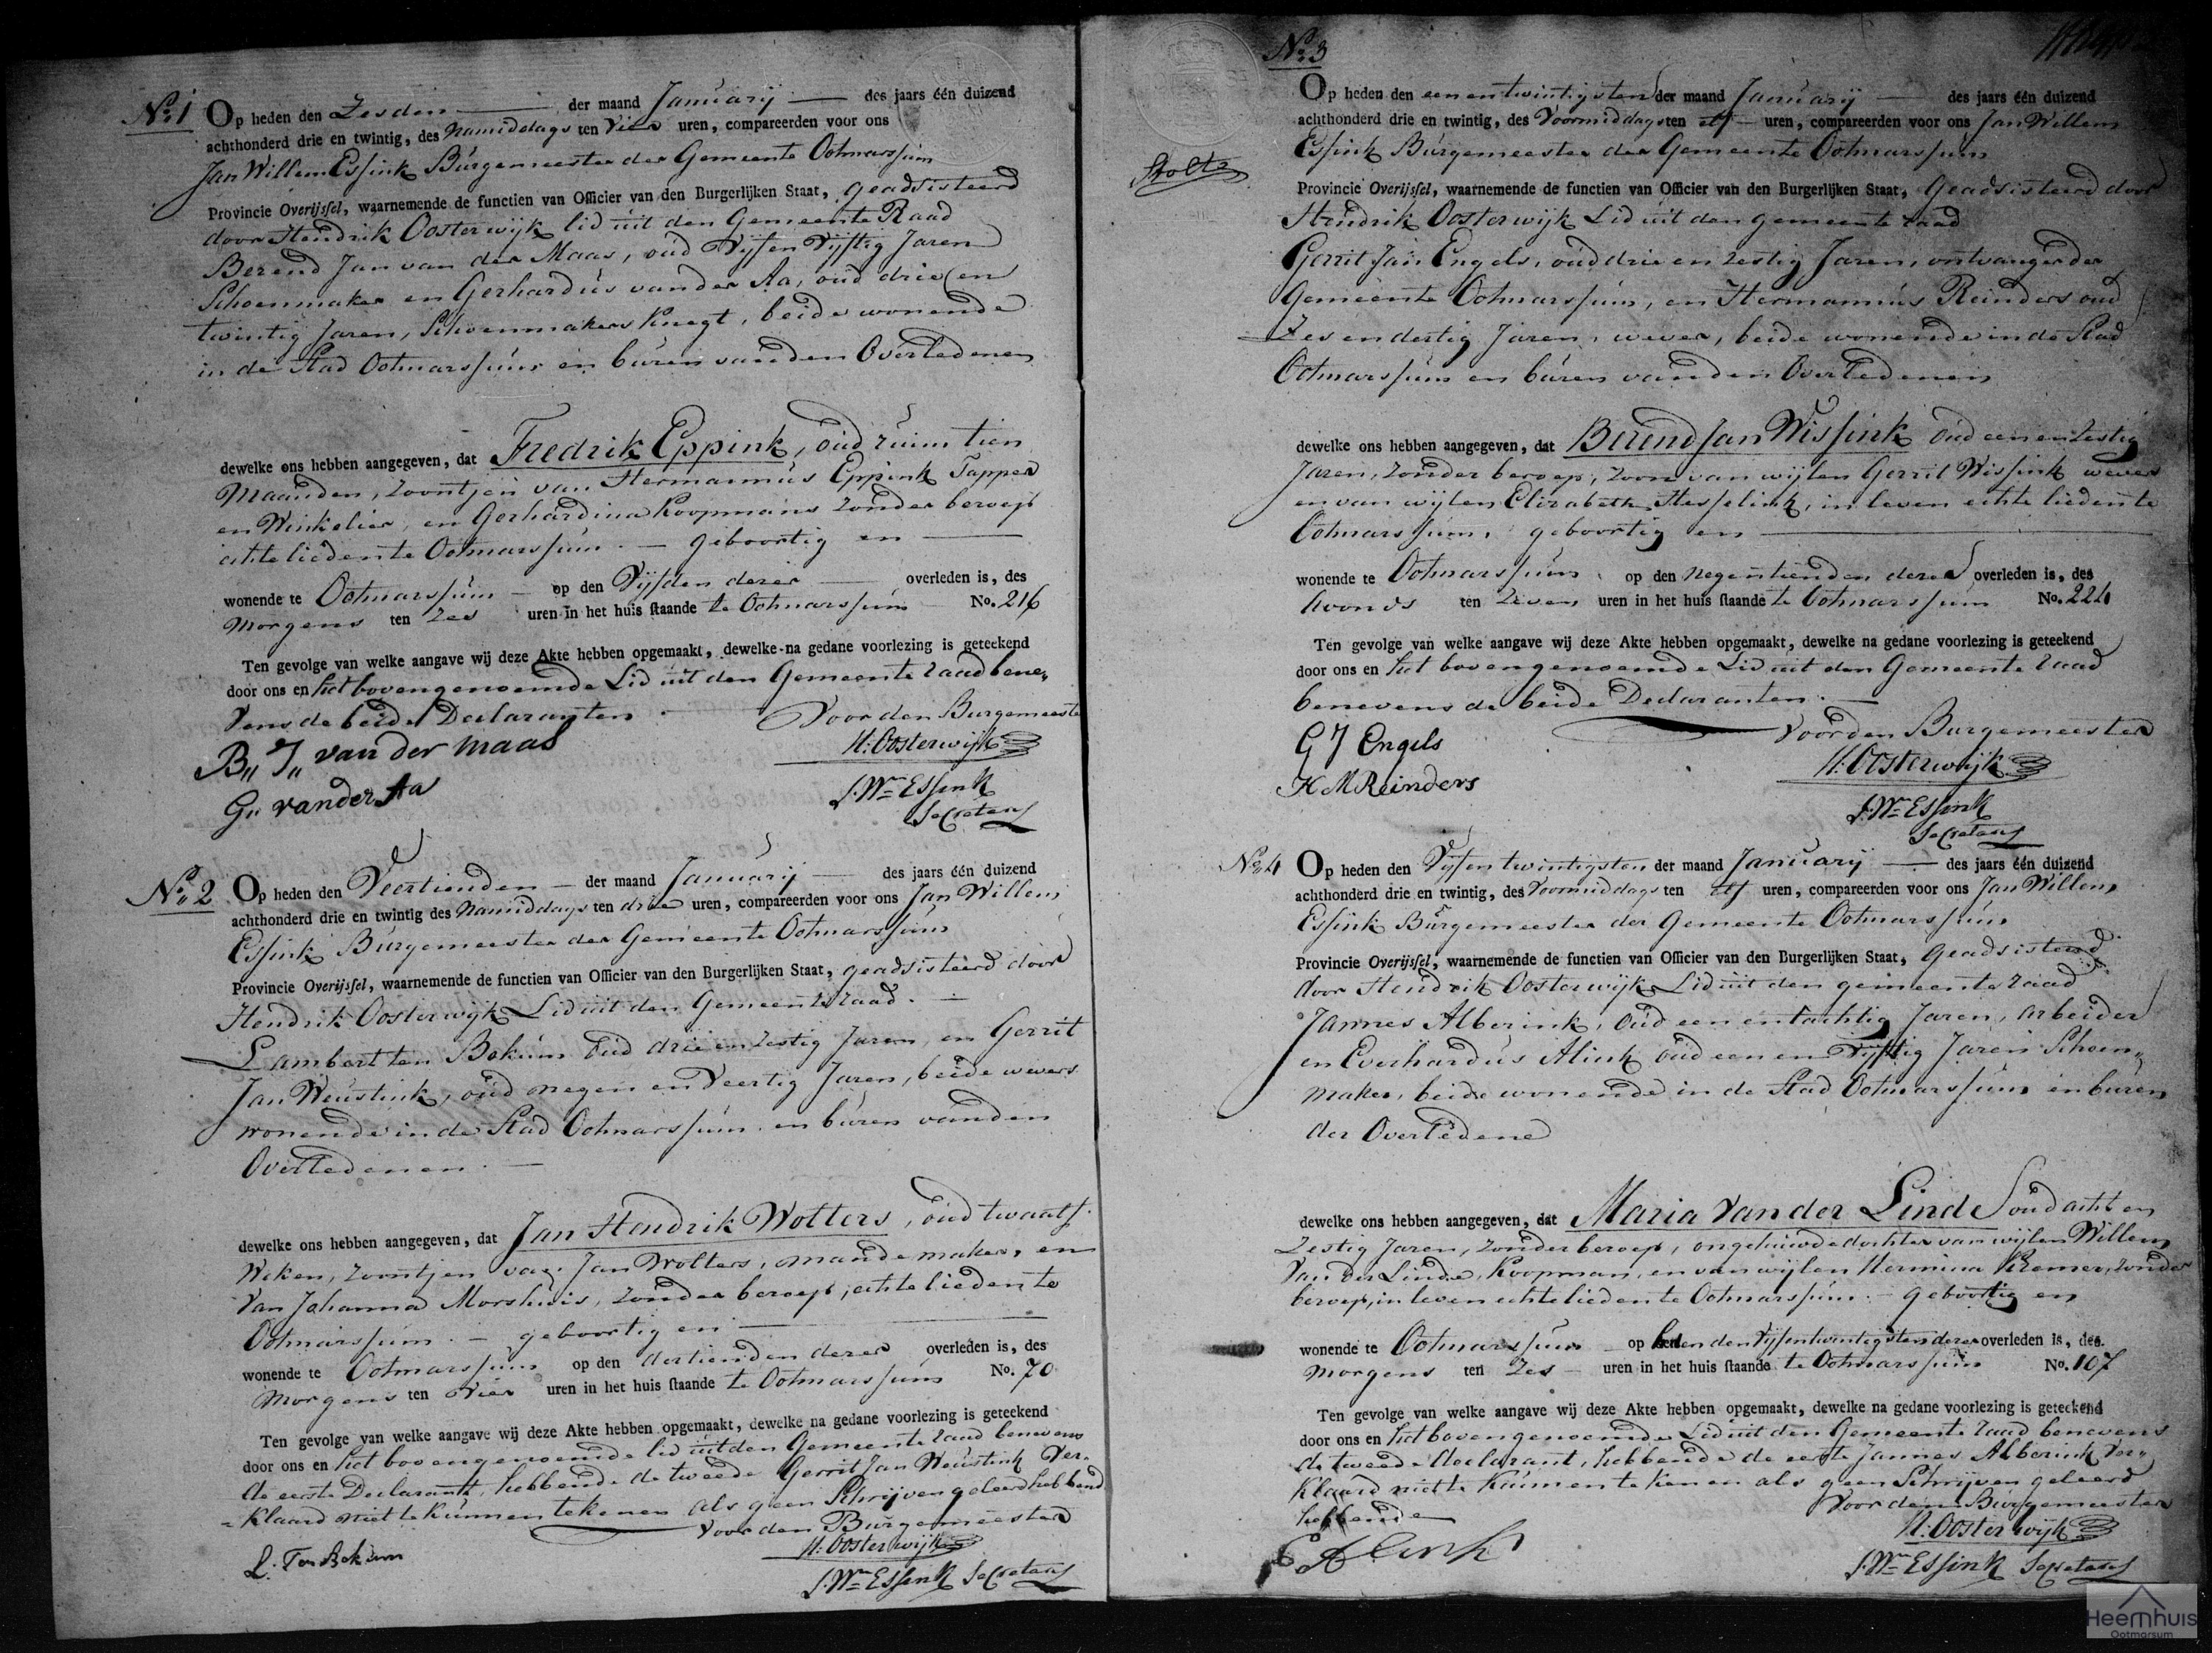 No. 1
Op heden den Zesden der maand Januarij des jaars één duizend
achthonderd drie en twintig, des Namiddags ten Vier uren, compareerden voor ons
Jan Willem Essink Burgemeester der Gemeente Ootmarssum
Provincie Overijssel, waarnemende de functien van Officier van den Burgerlijken Staat, geadsisteerd
door Hendrik Oosterwijk lid uit den Gemeente Raad
Berend Jan van der Maas, oud Vijf en Vijftig Jaren
Schoenmaker en Gerhardus van der Aa, oud drie en
twintig Jaren, Schoenmakers knegt, beide wonende
in de Stad Ootmarssum en buren van den Overledenen
dewelke ons hebben aangegeven, dat Fredrik Eppink, oud ruim tien
Maanden, zoontjen van Hermannus Eppink Tapper
en Winkelier, en Gerhardina Koopmans zonder beroep
echtelieden te Ootmarssum. — geboortig en —
wonende te Ootmarssum — op den Vijfden dezer — overleden is, des
Morgens ten Zes uren in het huis staande te Ootmarssum No. 216
Ten gevolge van welke aangave wij deze Akte hebben opgemaakt, dewelke na gedane voorlezing is geteekend
door ons en het bovengenoemde Lid uit den Gemeente raad bene„
vens de beide Declaranten
Voor den Burgemeester
B„ J„ van der Maas
H: Oosterwijk
G„ van der Aa
J. Wm Essink
Secretaris
No. 2
Op heden den Veertienden — der maand Januarij — des jaars één duizend
achthonderd drie en twintig des Namiddags ten drie uren, compareerden voor ons Jan Willem
Essink Burgemeester der Gemeente Ootmarssum
Provincie Overijssel, waarnemende de functien van Officier van den Burgerlijken Staat, geadsisteerd door
Hendrik Oosterwijk Lid uit den Gemeente raad. —
Lambert ten Bokum oud drie en zestig Jaren, en Gerrit
Jan Weustink, oud negen en Veertig Jaren, beide wevers
wonende in de Stad Ootmarssum en buren van den
Overledenen. —
dewelke ons hebben aangegeven, dat Jan Hendrik Wolters, oud twaalf
Weken, zoontjen van Jan Wolters, mandemaker, en
Van Johanna Morshuis, zonder beroep, echtelieden te
Ootmarssum. — geboortig en —
wonende te Ootmarssum op den dertienden dezer overleden is, des
Morgens ten Vier uren in het huis staande te Ootmarssum No. 70
Ten gevolge van welke aangave wij deze Akte hebben opgemaakt, dewelke na gedane voorlezing is geteekend
door ons en het bovengenoemde lid uit den Gemeente raad benevens
de eerste Declarant, hebbende de tweede Gerrit Jan Weustink Ver„
klaard niet te kunnen tekenen als geen Schrijven geleerd hebbend
Voor den Burgemeester
H: Oosterwijk
L: Ten Bokum
J. Wm Essink Secretaris
No. 3
Op heden den een en twintigsten der maand Januarij — des jaars één duizend
achthonderd drie en twintig, des Voormiddags ten elf — uren, compareerden voor ons Jan Willem
Essink Burgemeester der Gemeente Ootmarssum
Stolte
Provincie Overijssel, waarnemende de functien van Officier van den Burgerlijken Staat, Geadsisteerd door
Hendrik Oosterwijk Lid uit den gemeente raad
Gerrit Jan Engels, oud drie en zestig Jaren, ontvanger der
Gemeente Ootmarssum, en Hermannus Reinders oud
Zes en dertig Jaren, wever, beide wonende in de Stad
Ootmarssum en buren van den Overledenen
dewelke ons hebben aangegeven, dat Berend Jan Wissink oud een en zestig
Jaren, zonder beroep, zoon van wijlen Gerrit Wissink wever
en van wijlen Elizabeth Hesselink, in leven echtelieden te
Ootmarssum, geboortig en —
wonende te Ootmarssum, op den Negentienden dezer overleden is, des
Avonds ten Zeven uren in het huis staande te Ootmarssum No. 224
Ten gevolge van welke aangave wij deze Akte hebben opgemaakt, dewelke na gedane voorlezing is geteekend
door ons en het bovengenoemde Lid uit den Gemeente raad
benevens de beide Declaranten. —
Voor den Burgemeester
G J Engels
H: Oosterwijk
H M Reinders
J. Wm Essink
Secretaris
No. 4
Op heden den Vijf en twintigsten der maand Januarij — des jaars één duizend
achthonderd drie en twintig, des Voormiddags ten elf uren, compareerden voor ons Jan Willem
Essink Burgemeester der Gemeente Ootmarssum
Provincie Overijssel, waarnemende de functien van Officier van den Burgerlijken Staat, Geadsisteerd
door Hendrik Oosterwijk Lid uit den gemeente raad
Jannes Alberink, oud een en tachtig Jaren, arbeider
en Everhardus Alink oud een en Vijftig Jaren Schoen„
maker, beide wonende in de Stad Ootmarssum en buren
der Overledene
dewelke ons hebben aangegeven, dat Maria van der Linde oud acht en
Zestig Jaren, zonder beroep, ongehuwde dochter van wijlen Willem
Van der Linde, Koopman, en van wijlen Hermina Kremer, zonder
beroep, in leven echtelieden te Ootmarssum. — geboortig en
wonende te Ootmarssum — op heden den Vijfentwintigsten dezer overleden is, des
Morgens ten Zes — uren in het huis staande te Ootmarssum No. 107
Ten gevolge van welke aangave wij deze Akte hebben opgemaakt, dewelke na gedane voorlezing is geteekend
door ons en het bovengenoemde Lid uit den Gemeente raad benevens
de tweede declarant, hebbende de eerste Jannes Alberink Ver„
klaard niet te kunnen tekenen als geen Schrijven geleerd
hebbende
Voor den Burgemeester
H: Oosterwijk
E Alink
J. Wm Essink Secretaris
Heemhuis
Ootmarsum